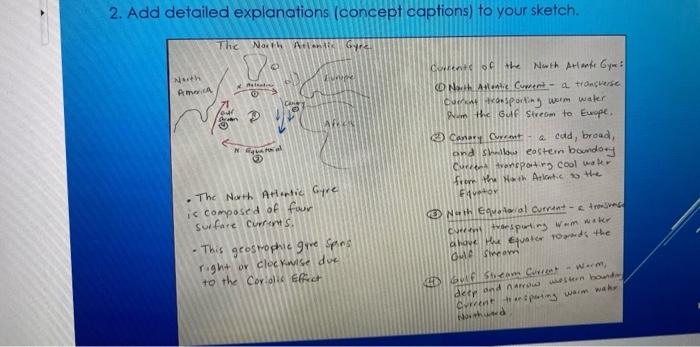 2. Add detailed explanations (concept captions) to your sketch.
The North Atlantic Gyre
North
America
Europe
N Atlantic
①
Canary
②
Gulf
Stream
④
Africa
N Equatorial
③
• The North Atlantic Gyre
is composed of four
surface currents.
• This geostrophic gyre spins
right or clockwise due
to the Coriolis Effect
Currents of the North Atlantic Gyre:
① North Atlantic Current - a transverse
current transporting warm water
from the Gulf Stream to Europe.
② Canary Current - a cold, broad,
and shallow eastern boundary
current transporting cool water
from the North Atlantic to the
Equator
③ North Equatorial Current - a transverse
current transporting warm water
above the Equator towards the
Gulf Stream
④ Gulf Stream Current - Warm,
deep and narrow western boundary
current transporting warm water
Northward.